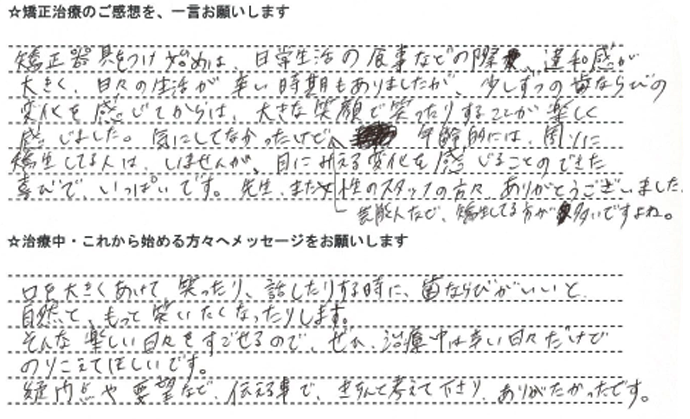 ☆矯正治療のご感想を、一言お願いします
矯正器具をつけ始めは、日常生活の食事などの際、違和感が
大きく、日々の生活が辛い時期もありましたが、少しずつの歯ならびの
変化を感じてからは、大きな笑顔で笑ったりすることが楽しく
感じました。気にしてなかったけど 年齢的には、周りに
矯正してる人は、いませんが、目にみえる変化を感じることのできた
喜びで、いっぱいです。先生、また女性のスタッフの方々 ありがとうございました。
芸能人など、矯正してる方が多いですよね。
☆治療中・これから始める方々へメッセージをお願いします
口を大きくあけて 笑ったり、話したりする時に、歯ならびがいいと
自然と、もっと笑いたくなったりします。
そんな楽しい日々をすごせるので、ぜひ、治療中は辛い日々だけど
のりこえてほしいです。
疑問点や要望など、伝える事で、きちんと考えて下さり、ありがたかったです。